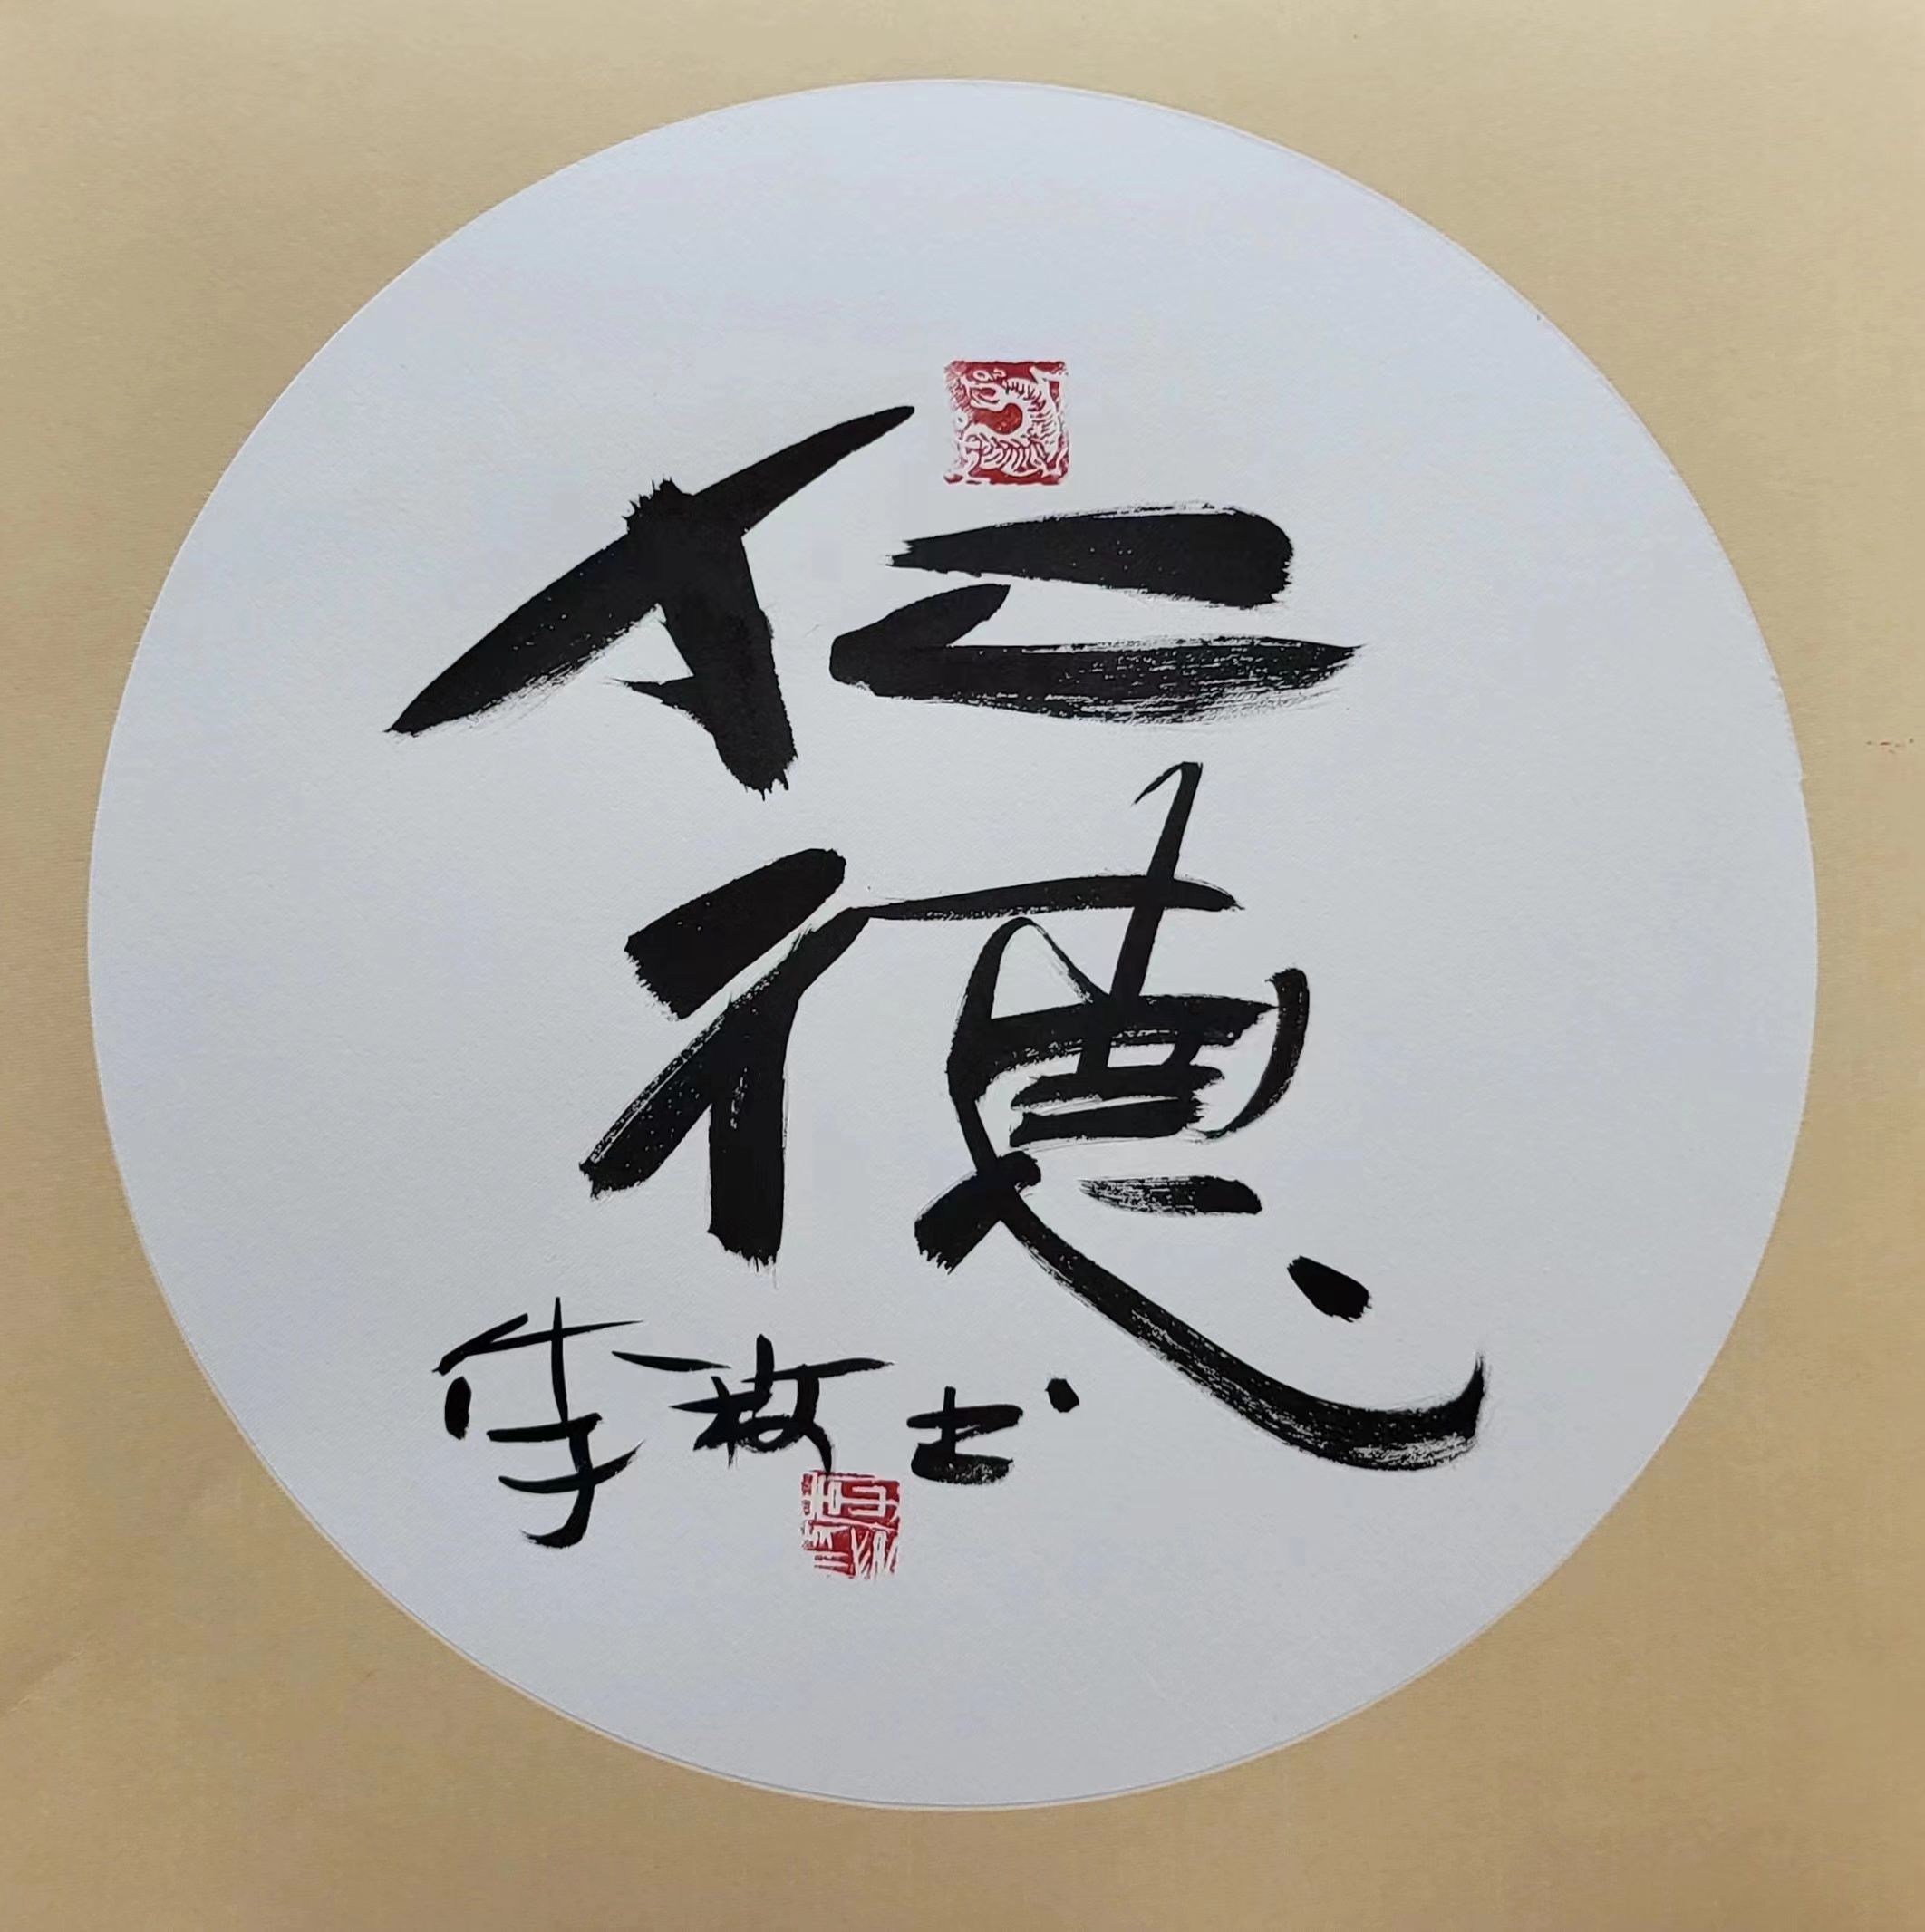 仁
德
李 书